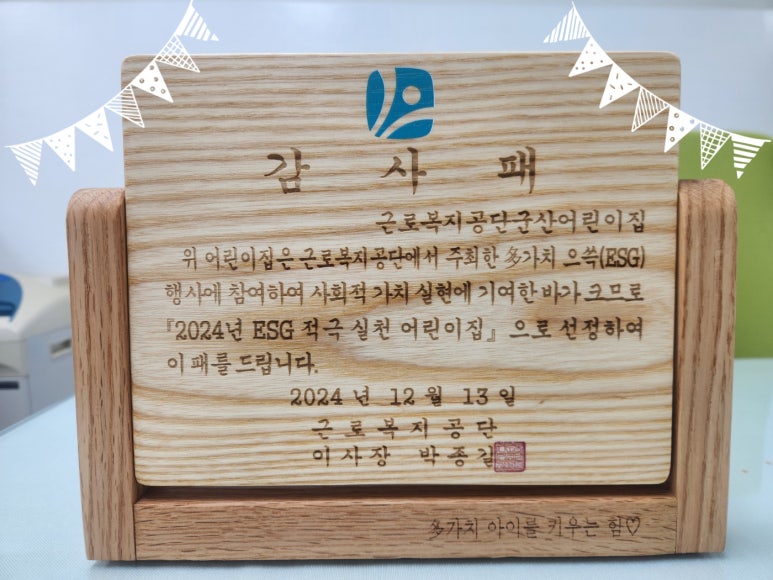 감 사 패
근로복지공단군산어린이집
위 어린이집은 근로복지공단에서 주최한 多가치 으쓱(ESG)
행사에 참여하여 사회적 가치 실현에 기여한 바가 크므로
『2024년 ESG 적극 실천 어린이집』 으로 선정하여
이 패를 드립니다.
2024 년 12 월 13 일
근 로 복 지 공 단
이 사 장 박 종 길
多가치 아이를 키우는 힘♡